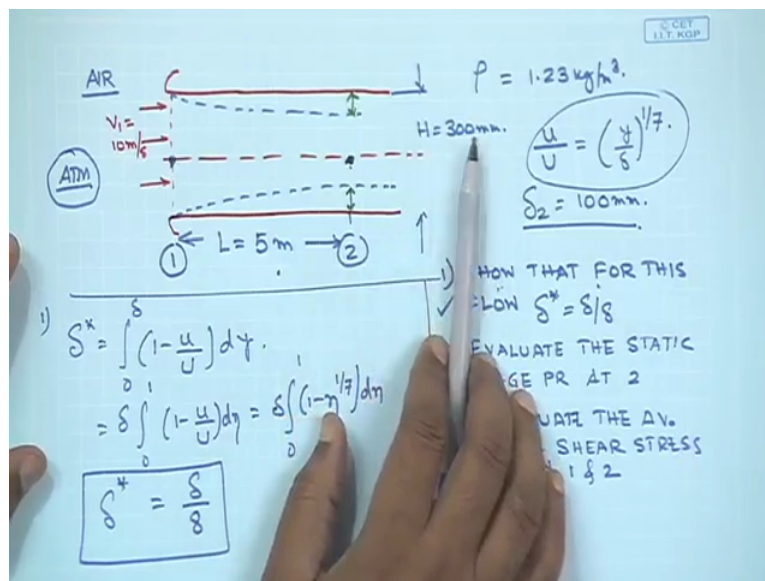 © CET
I.I.T. KGP
AIR
V₁ =
10m/s
ATM
L = 5 m
① ②
H = 300mm.
ρ = 1.23 kg/m³.
u/U = (y/δ)^1/7.
δ₂ = 100mm.
1) HOW THAT FOR THIS
✓ LOW δ* = δ/8
EVALUATE THE STATIC
GE PR AT 2
UATE THE AV.
SHEAR STRESS
1 & 2
1) δ* = ∫₀^δ (1 - u/U) dy.
= δ ∫₀^1 (1 - u/U) dη = δ ∫₀^1 (1 - η^1/7) dη
δ* = δ/8